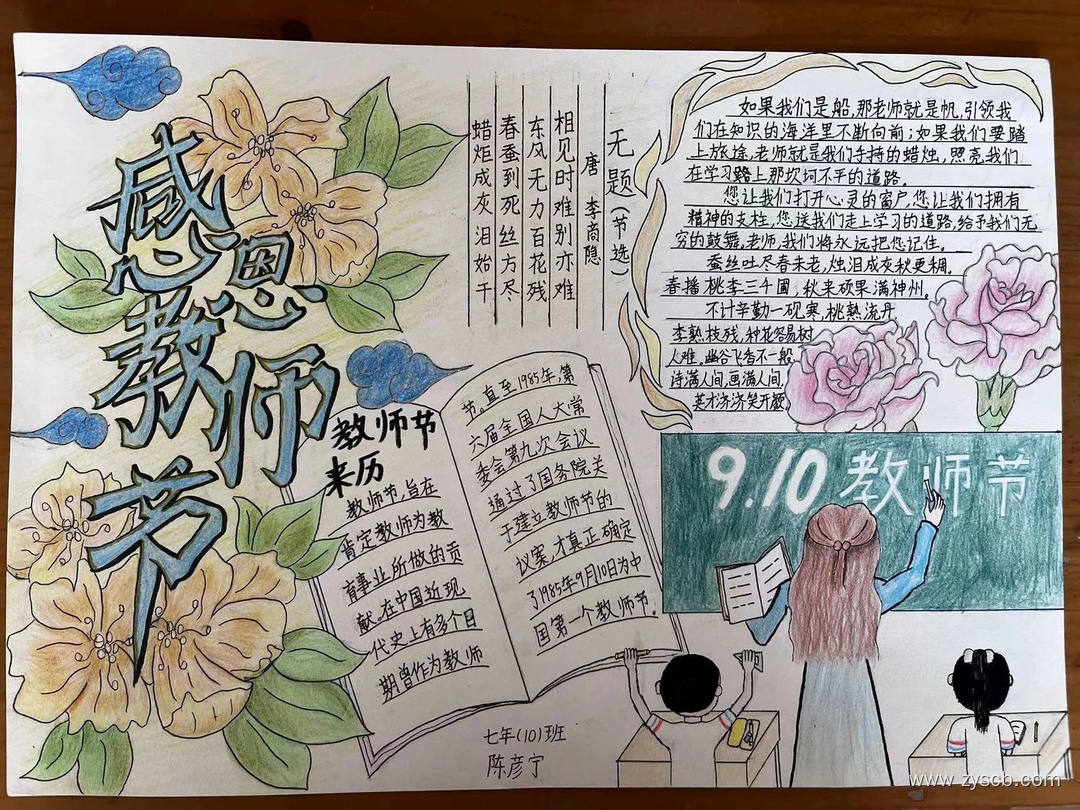 感恩
教师
节
无题(节选)
唐 李商隐
相见时难别亦难
东风无力百花残
春蚕到死丝方尽
蜡炬成灰泪始干
如果我们是船,那老师就是帆,引领我
们在知识的海洋里不断向前;如果我们要踏
上旅途,老师就是我们手持的蜡烛,照亮我们
在学习路上那坎坷不平的道路。
您让我们打开心灵的窗户,您让我们拥有
精神的支柱,您送我们走上学习的道路,给予我们无
穷的鼓舞,老师,我们将永远把您记住。
蚕丝吐尽春未老,烛泪成灰秋更稠。
春播桃李三千圃,秋来硕果满神州。
不计辛勤一砚寒,桃熟流丹,
李熟枝残,种花容易树
人难。幽谷飞香不一般,
诗满人间,画满人间,
英才济济笑开颜
教师节
来历
教师节,旨在
肯定教师为教
育事业所做的贡
献。在中国近现
代史上有多个日
期曾作为教师
节。直至1985年,第
六届全国人大常
委会第九次会议
通过了国务院关
于建立教师节的
议案,才真正确定
了1985年9月10日为中
国第一个教师节。
9.10 教师节
七年(10)班
陈彦宁
www.zyscb.com